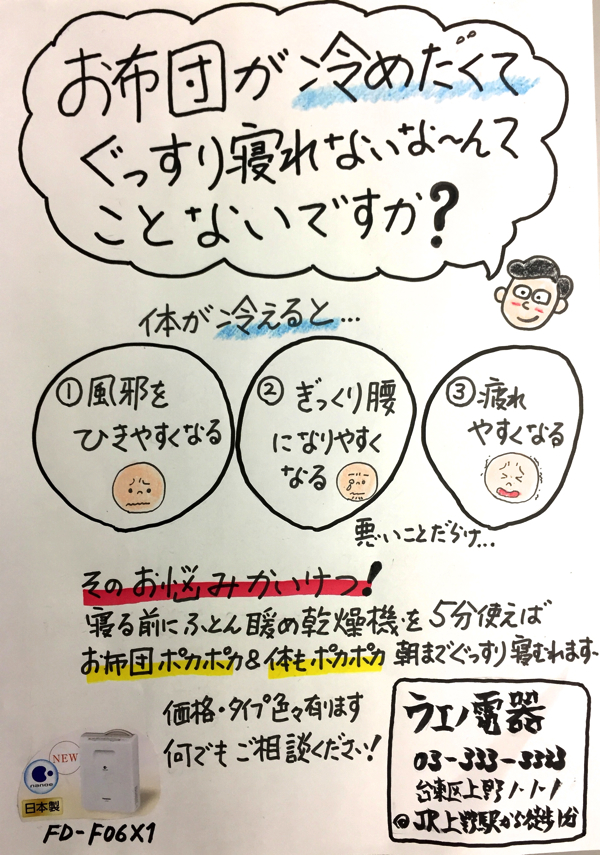 お布団が冷めたくて
ぐっすり寝れないな〜んて
ことないですか?
体が冷えると…
①風邪を
ひきやすくなる
②ぎっくり腰
になりやすく
なる
③疲れ
やすくなる
悪いことだらけ…
そのお悩みかいけつ!
寝る前にふとん暖め乾燥機を5分使えば
お布団ポカポカ&体もポカポカ 朝までぐっすり寝むれます。
価格・タイプ色々有ります
何でもご相談ください!
NEW
nanoe
日本製
FD-F06X1
ウエノ電器
03-333-3333
台東区上野1-1-1
@JR上野駅から徒歩1分